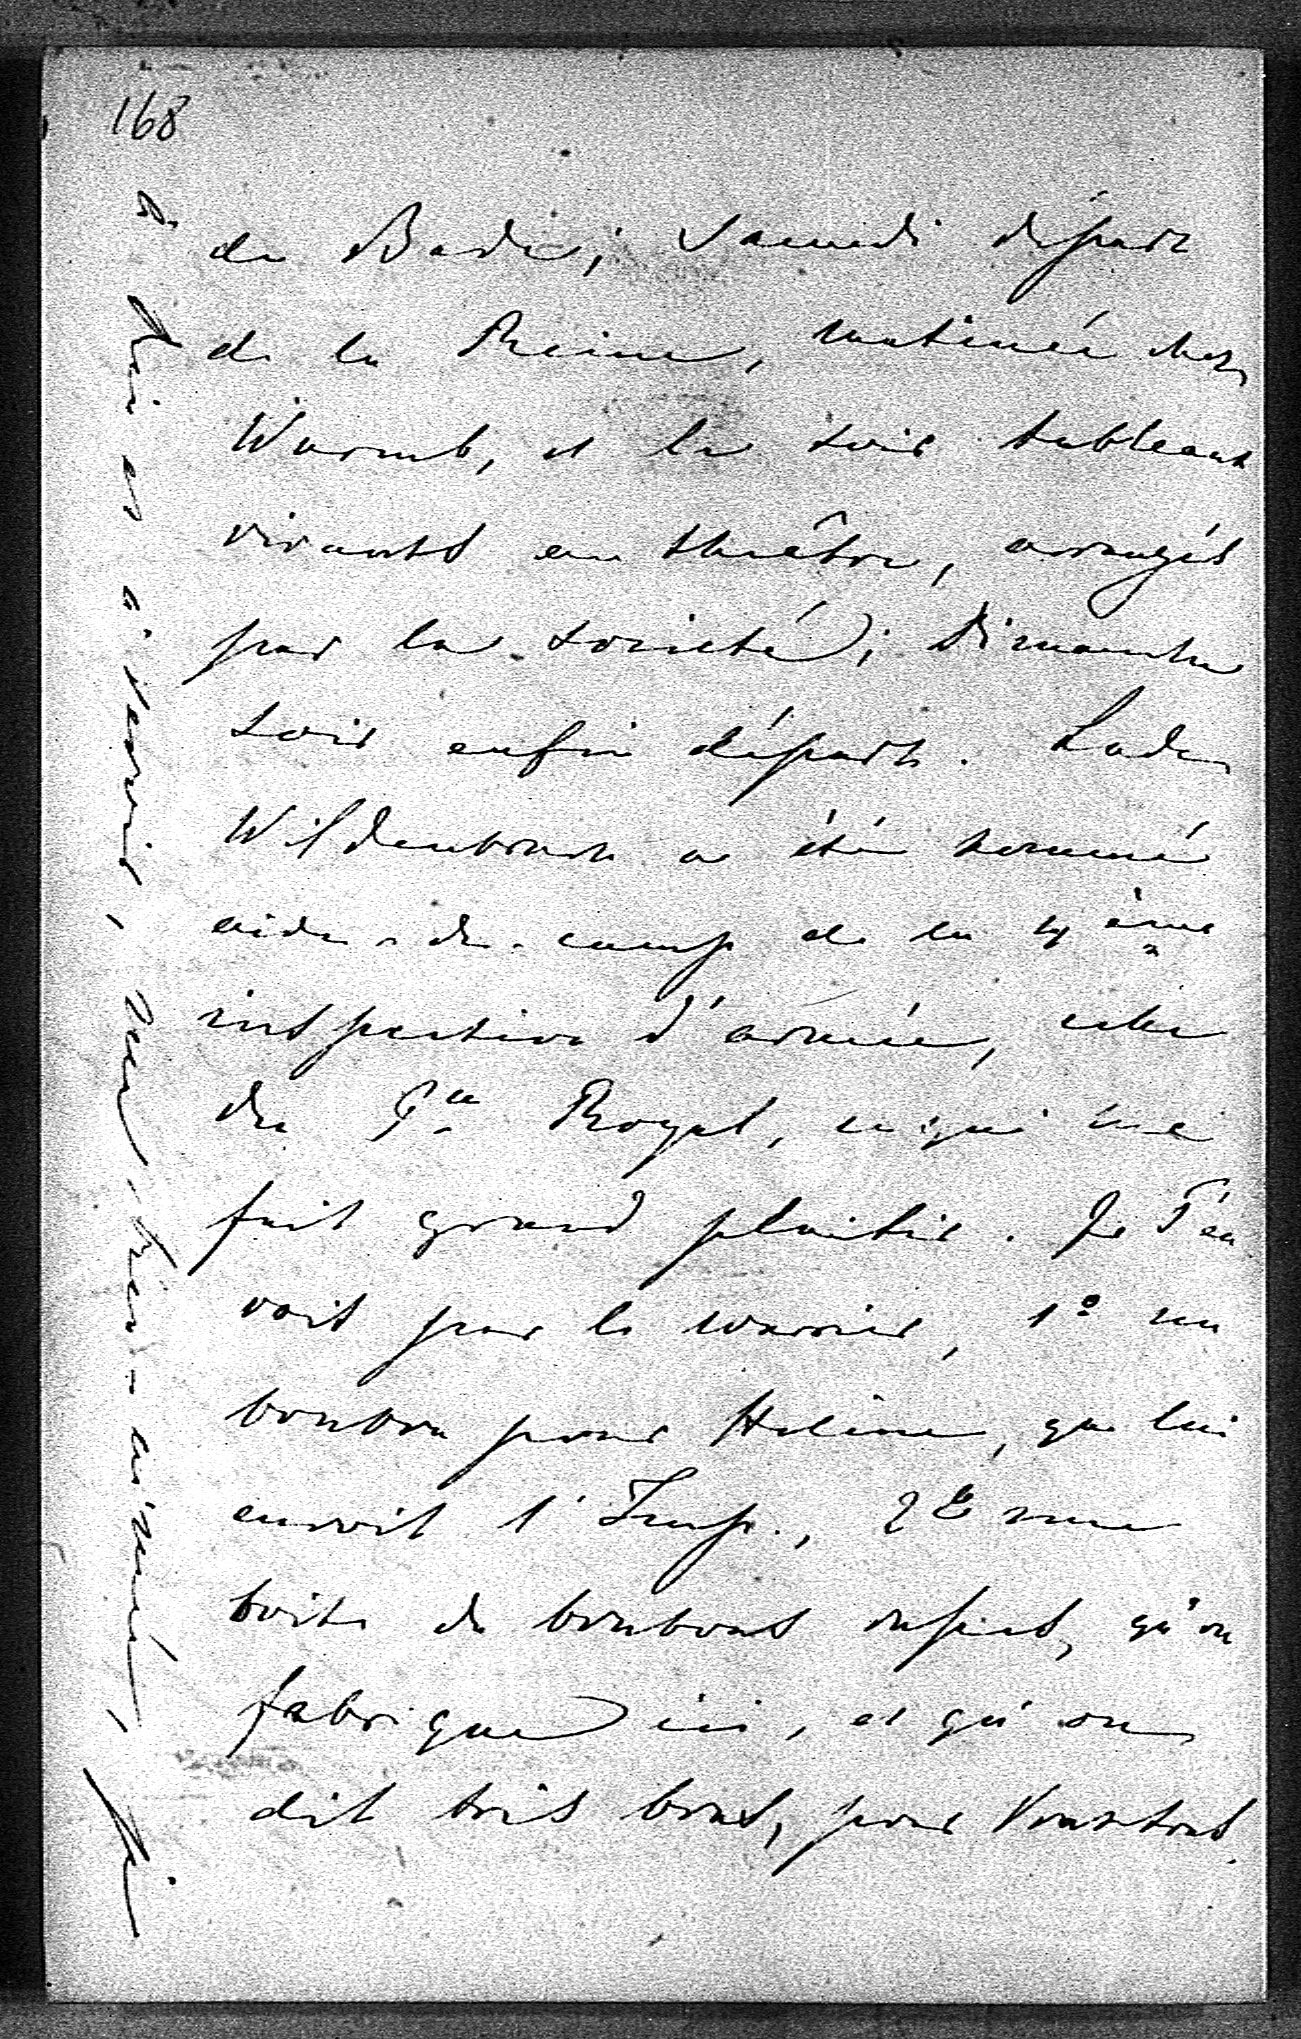 168
de Bade; Samedi départ
de la Reine, matinée chez
Wurmb, et le soir tableaux
vivants au théâtre, arrangés
par la société; Dimanche
soir enfin départ.
Wildenbruch a été nommé
aide-de-camp de la 4ème
inspection d'armée, celle
du Pce Royal, ce qui me
fait grand plaisir. Je T'en
voit par le courrier, 1º un
bonbon pour Helène, que lui
envoit l'Imp., 2º une
boite de bonbons, qu'on
fabrique ici, et qu'on
dit très bons, pour Vous tous.
à Toi et à, mon